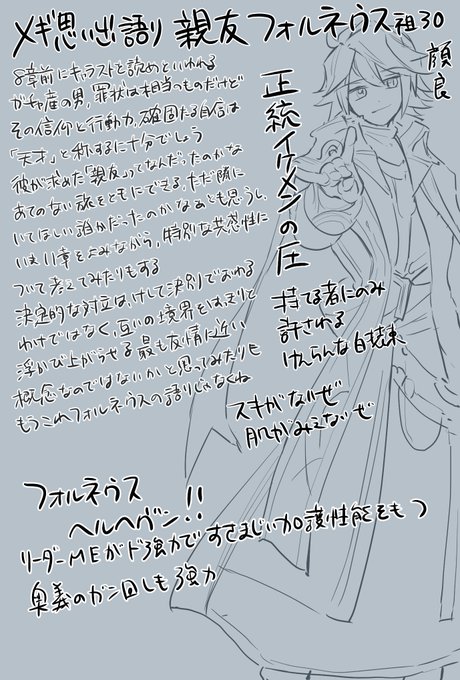 メギ思い出語り 親友フォルネウス 祖30
顔良
正統イケメンの圧
8章前にキャラストを読めといわれる
ガチャ産の男、罪状は相当のものだけど
その信仰と行動力、確固たる自信は
「天才」と称するに十分でしょう
彼が求めた「親友」ってなんだったのかな
あてのない旅をともにできる、ただ隣に
いてほしい誰かだったのかなあとも思うし、
いまい章をよみながら、特別な共感性に
ついて考えてみたりもする
決定的な対立は、けして決別でおわる
わけではなく、互いの境界をはっきりと
浮かび上がらせる最も友情に近い
概念なのではないかと思ってみたりも
もうこれフォルネウスの語りじゃなくね
持てる者にのみ
許される
けんらんな白装束
スキがないぜ
肌がみえないぜ
フォルネウス
ヘルヘヴン!!
リーダーMEがド強力ですさまじい加護性能をもつ
奥義のガン回しも強力